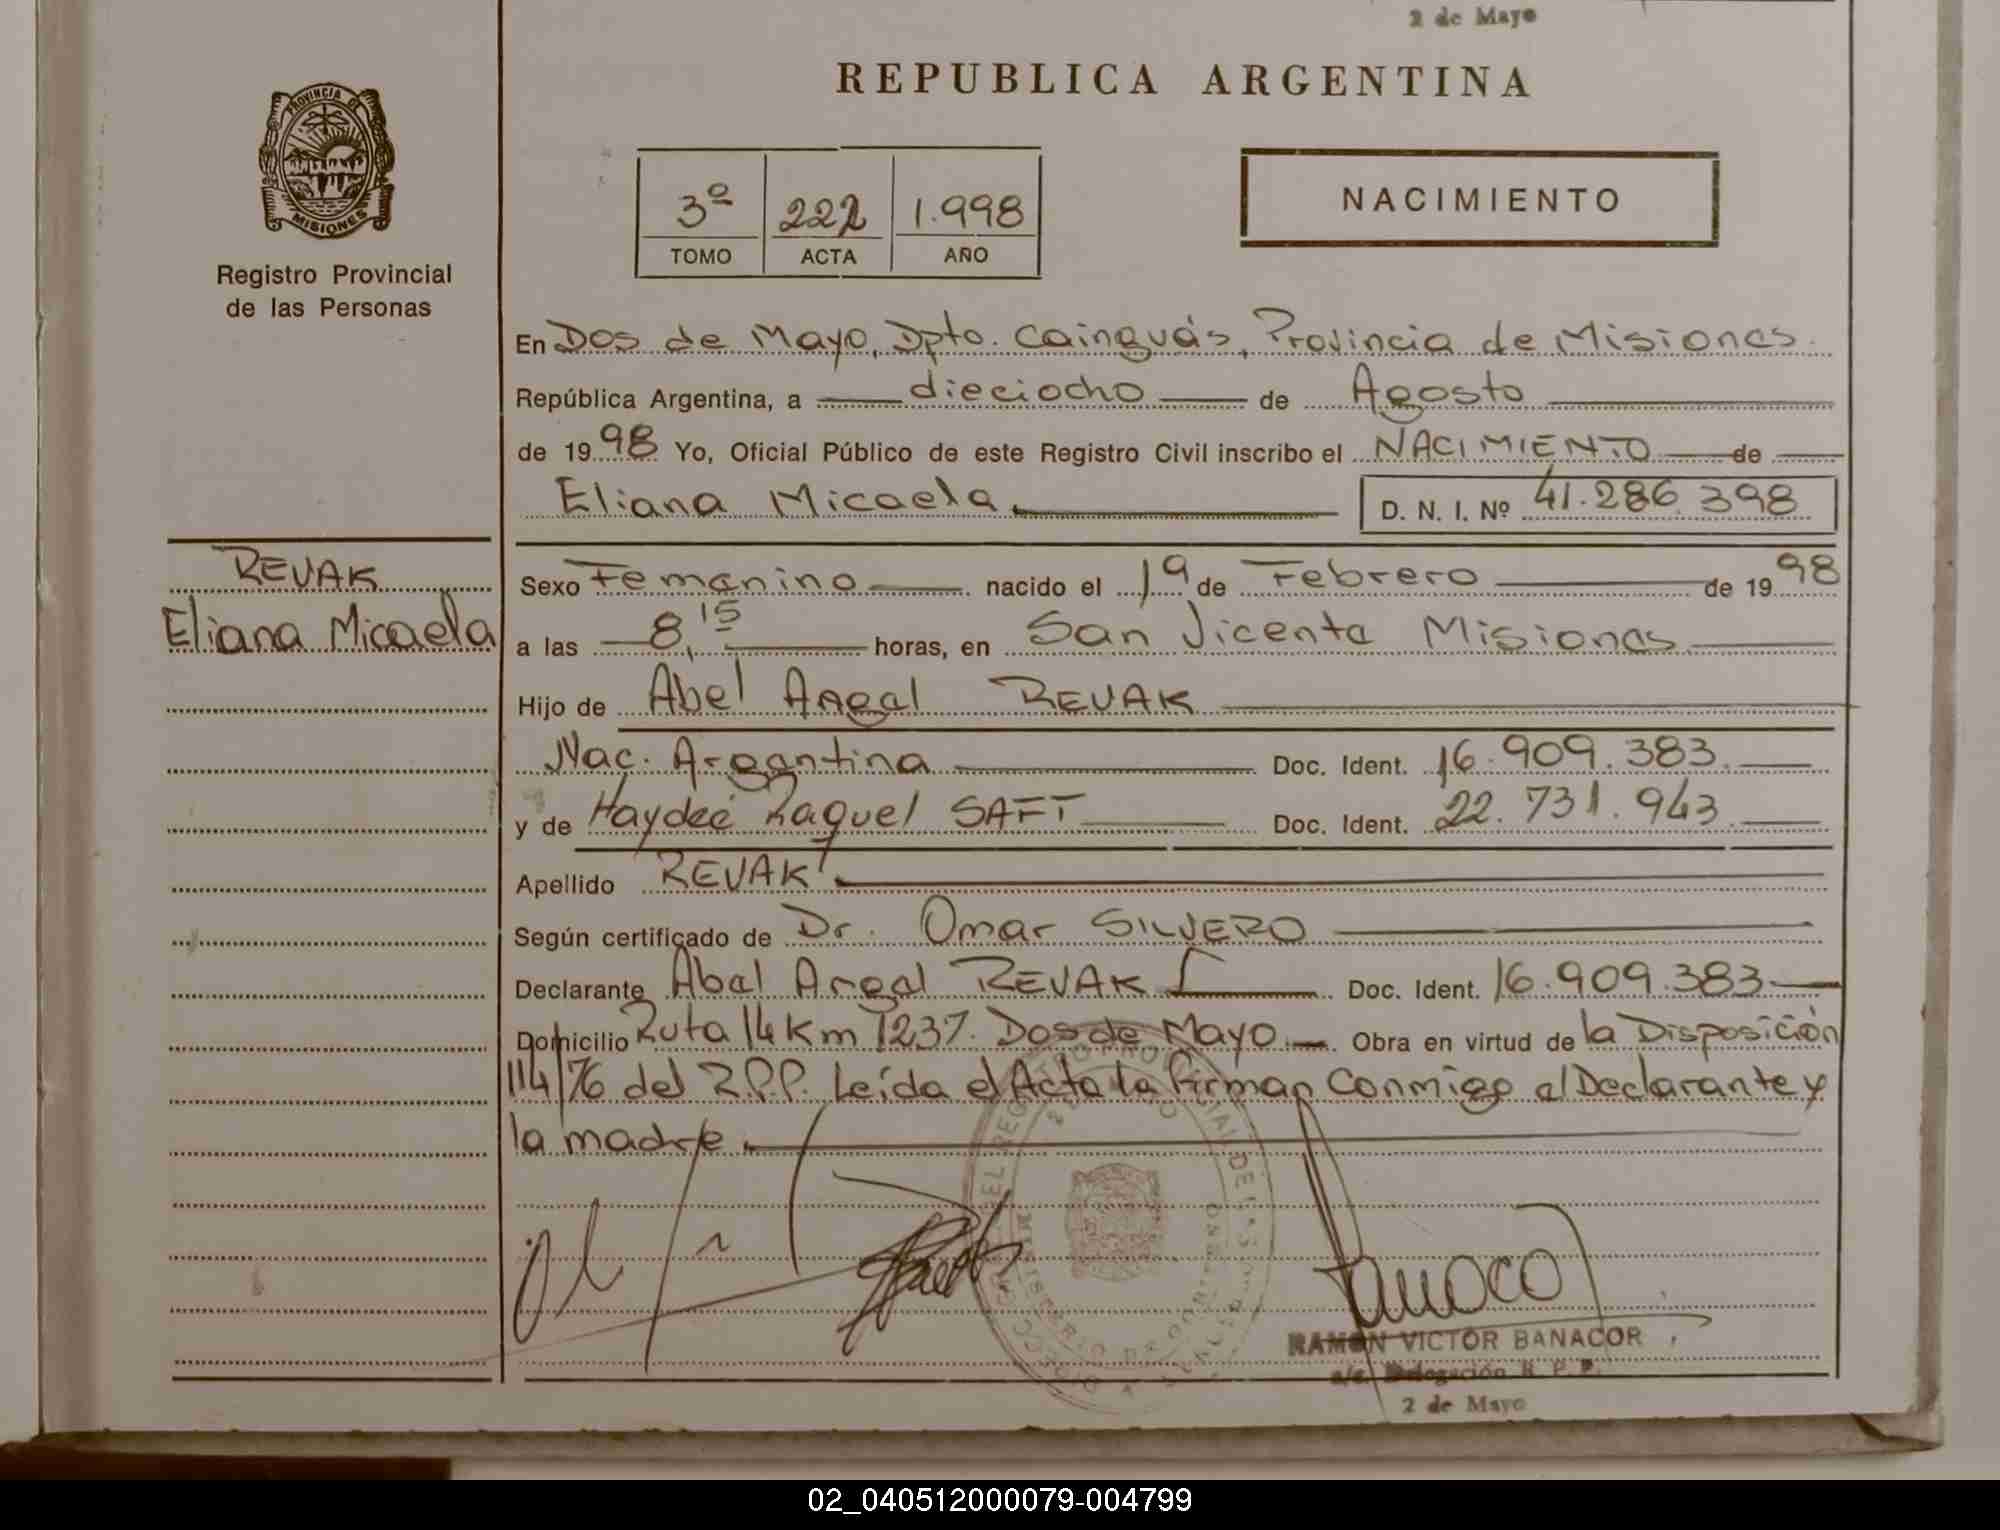 2 de Mayo
REPUBLICA ARGENTINA
PROVINCIA DE
MISIONES
Registro Provincial
de las Personas
3º 222 1.998
TOMO ACTA AÑO
NACIMIENTO
En Dos de Mayo, Dpto. Cainguás, Provincia de Misiones.
República Argentina, a dieciocho de Agosto
de 1998 Yo, Oficial Público de este Registro Civil inscribo el NACIMIENTO de
Eliana Micaela D. N. I. Nº 41.286.398
REVAK
Eliana Micaela
Sexo Femenino nacido el 1º de Febrero de 1998
a las 8,15 horas, en San Vicente Misiones
Hijo de Abel Angel REVAK
Nac. Argentina Doc. Ident. 16.909.383.
y de Haydeé Raquel SAFT Doc. Ident. 22.731.943
Apellido REVAK
Según certificado de Dr. Omar SILVERO
Declarante Abel Angel REVAK Doc. Ident. 16.909.383
Domicilio Ruta 14 Km 1237. Dos de Mayo. Obra en virtud de la Disposición
114/76 del R.P.P. Leída el Acta la firman conmigo el Declarante y
la madre.
RAMON VICTOR BANACOR
a/c. Delegación R. P. P.
2 de Mayo
02_040512000079-004799